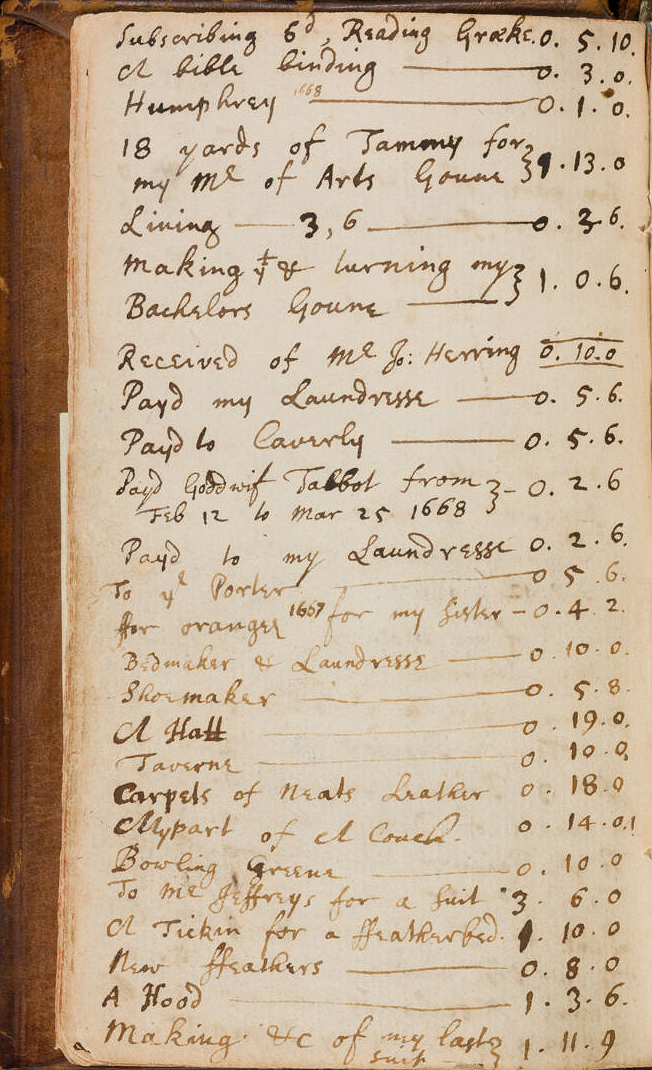 Subscribing 6d, Reading Græke. 0. 5. 10.
A bible binding —— 0. 3. 0.
Humphrey 1668 —— 0. 1. 0.
18 yards of Tammy for
my Mr of Arts Goune } 1. 13. 0
Lining — 3, 6 —— 0. 3 6.
Making yt & turning my
Bachelors Goune —— } 1. 0. 6.
Received of Mr Jo: Herring 0. 10. 0
Payd my Laundresse —— 0. 5. 6.
Payd to Caverly —— 0. 5. 6.
Payd Goodwif Talbot from
Feb 12 to Mar 25 1668 } - 0. 2. 6
Payd to my Laundresse 0. 2. 6.
To ye Porter —— 0 5. 6.
ffor oranges 1667 for my sister - 0. 4. 2.
Bedmaker & Laundresse —— 0. 10. 0.
Shoemaker —— 0. 5. 8.
A Hatt —— 0. 19. 0.
Taverne —— 0. 10. 0
Carpets of Neats Leather 0. 18. 0
My part of A Couch. 0. 14. 0
Bowling Greene —— 0. 10. 0
To Mr Jeffreys for a Suit 3. 6. 0
A Tickin for a ffeatherbed. 1. 10. 0
New ffeathers —— 0. 8. 0
A Hood —— 1. 3. 6.
Making &c of my last
suit — } 1. 11. 9